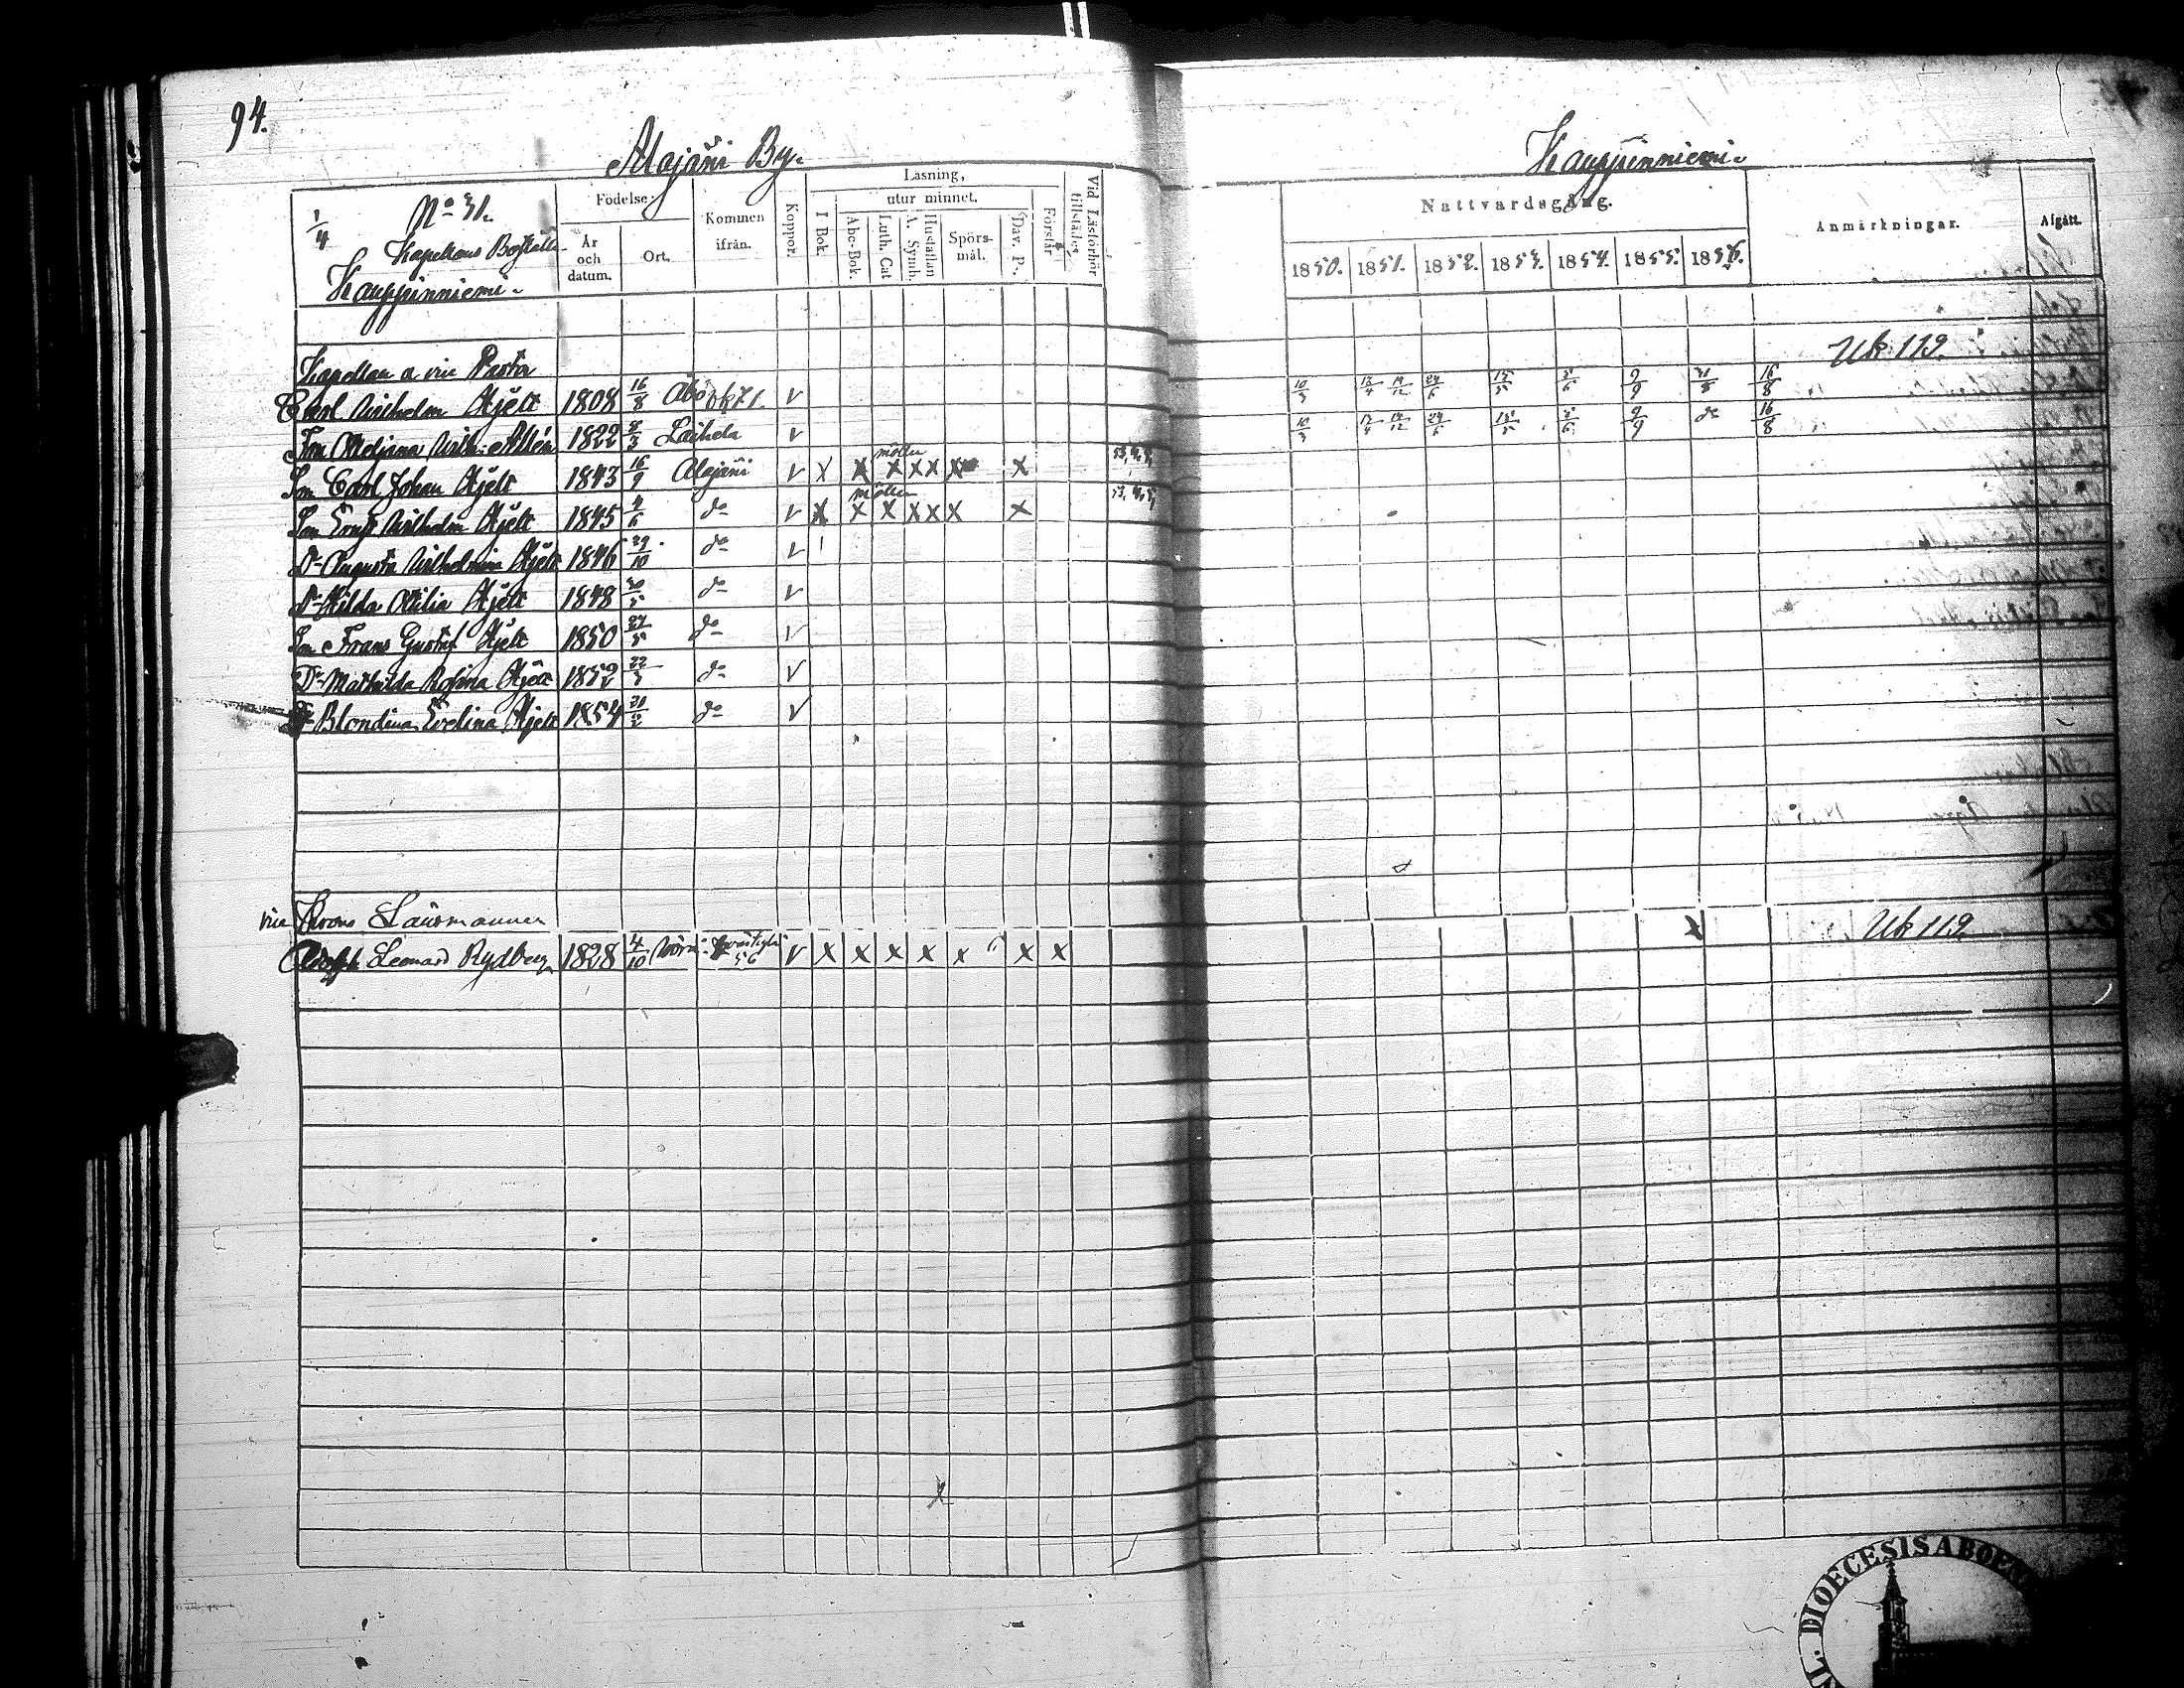 94.
Alajärvi By.
1/4 No 31.
Kapellans Boställe
Kauppinniemi.
Födelse:
År och datum.
Ort.
Kommen ifrån.
Koppor.
Läsning,
I Bok.
utur minnet.
Abc-Bok.
Luth. Cat
A. Symb.
Hustaflan
Spörsmål.
Dav. P.
Förstår
Vid Läsförhör tillstädes
Kapellan o vice Pastor
Carl Wilhelm Hjelt 1808 16/8 Åbo v
Wilh. 1822 Laihela v
Son Carl Johan Hjelt 1843 16/9 Alajärvi v X X X X X X X
Son Ernst Wilhelm Hjelt 1845 4/6 do v X X X X X X X
Dr Augusta Wilhelmina Hjelt 1846 29/10 do v
Dr Hilda Otilia Hjelt 1848 30/5 do v
Son Frans Gustaf Hjelt 1850 27/5 do v
Dr Mathilda Rosina Hjelt 1852 22/3 do v
Dr Blondina Evelina Hjelt 1854 21/2 do v
vice Krono Länsmannen
Adolph Leonard Rydberg 1828 4/10 56 v X X X X X X X
Kauppinniemi.
Nattvardsgång.
1850. 1851. 1852. 1853. 1854. 1855. 1856.
Anmärkningar.
Afgått.
Ub 119.
10/3 24/6 15/5 9/9 31/8 16/8
10/3 24/6 15/5 9/9 do 16/8
X Ub 119
DIOECESIS ABOEN